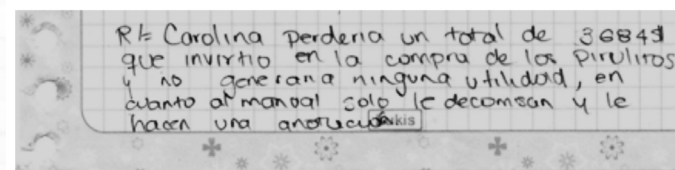 R/= Carolina perderia un total de 3684$
que invirtio en la compra de los Pirulitos
y no generaria ninguna utilidad, en
cuanto al manual solo le decomisan y le
hacen una